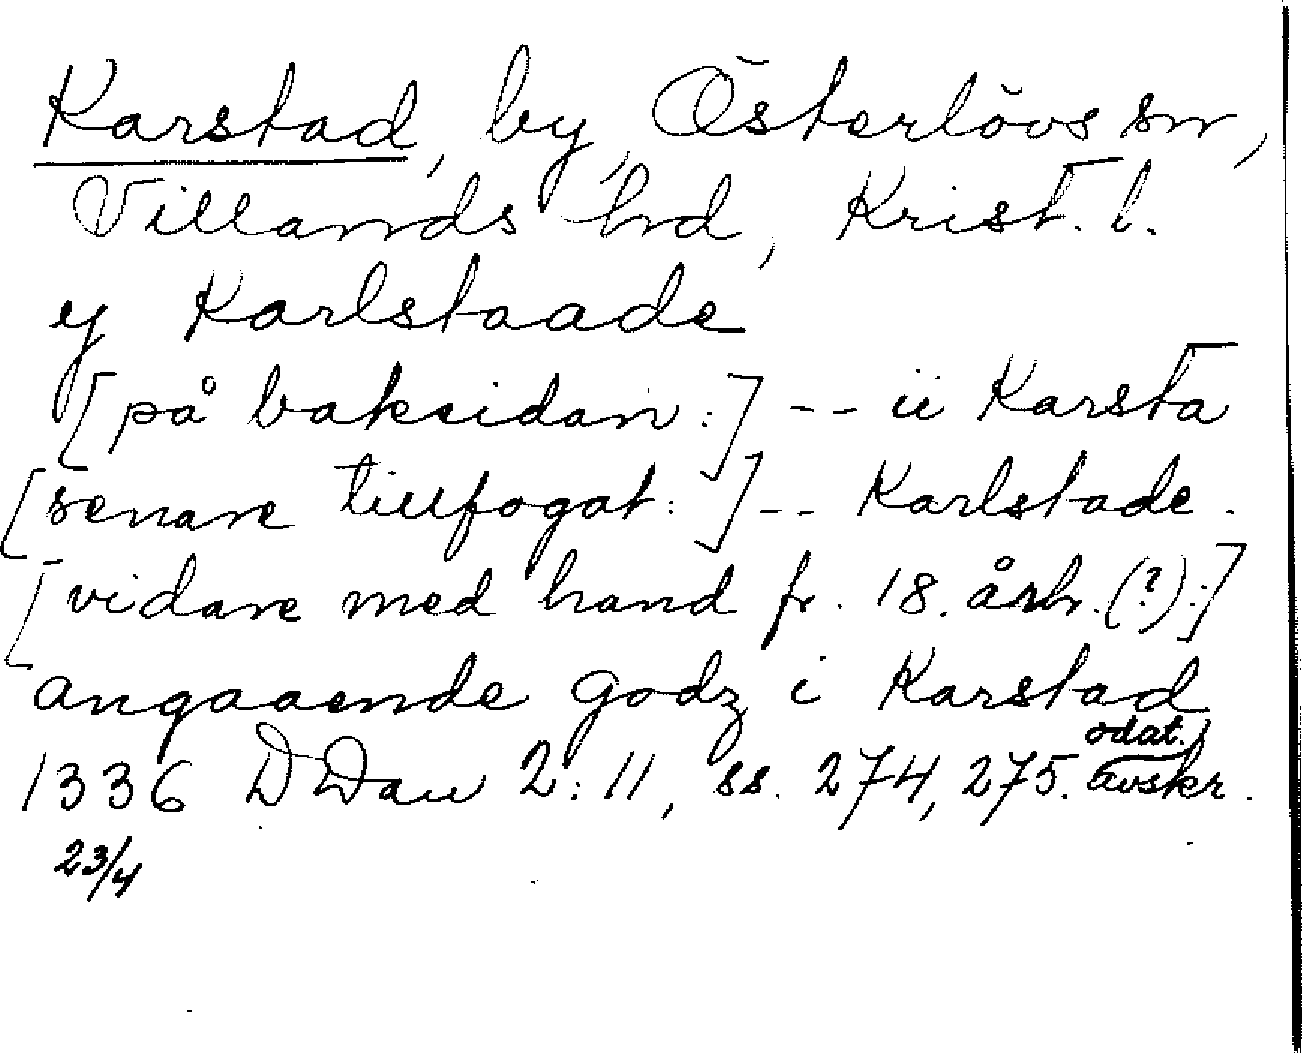 Karstad, by, Österlövs sn,
Villands hd, Krist. l.
y Karlstaade
[på baksidan:] -- ii Karsta
[senare tillfogat:] -- Karlstade.
[vidare med hand fr. 18. årh. (?):]
angaaende godz i Karstad
1336 DDan 2:11, ss. 274, 275. odat. avskr.
23/4